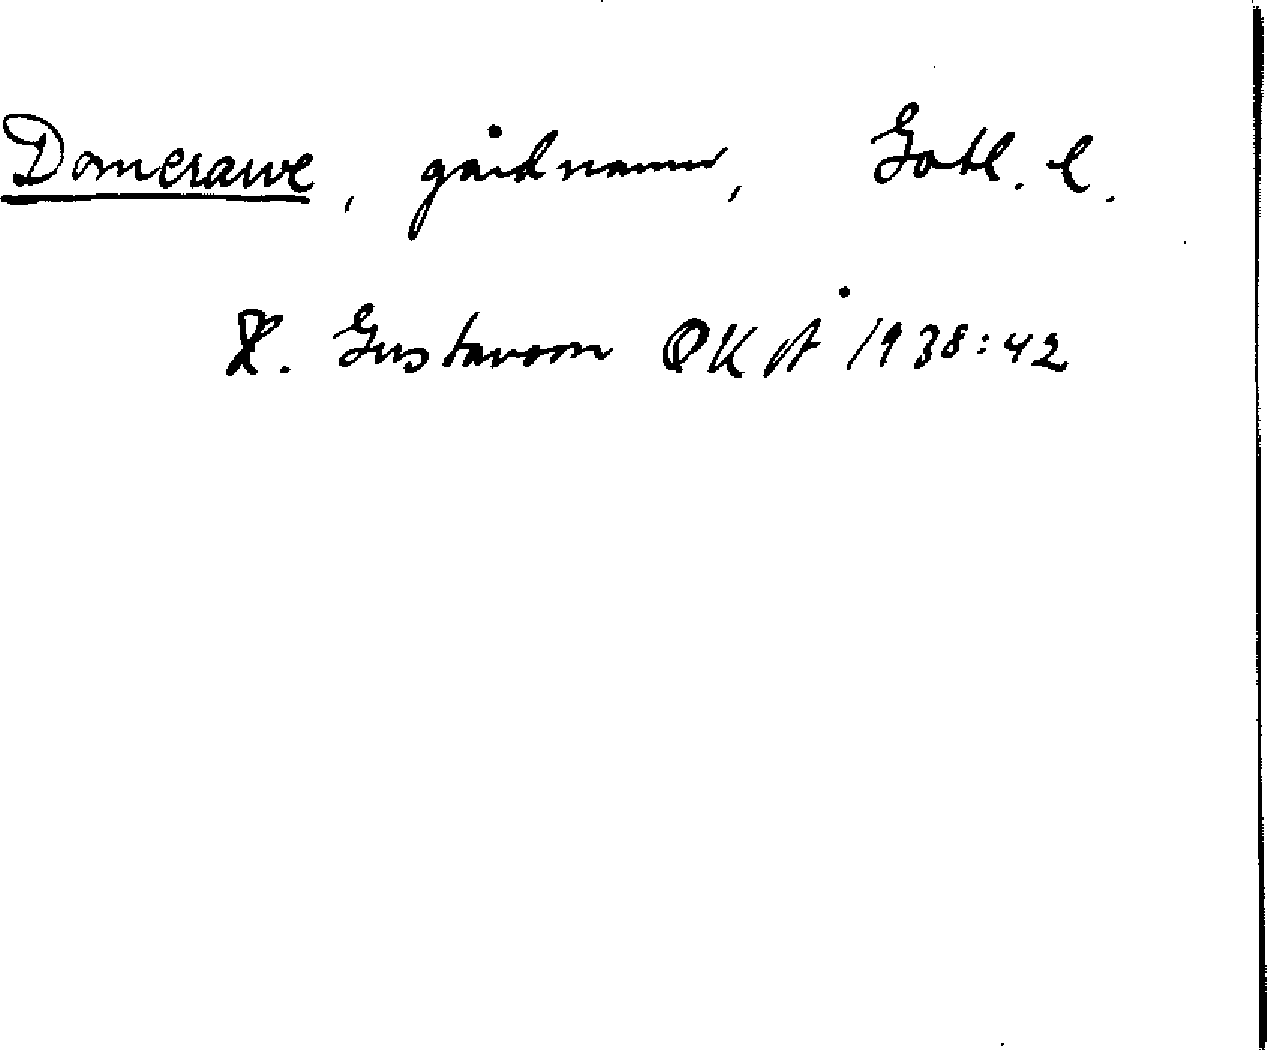 Domerarve, gårdnamn, Gotl. l.
H. Gustavson OKÅ 1938:42